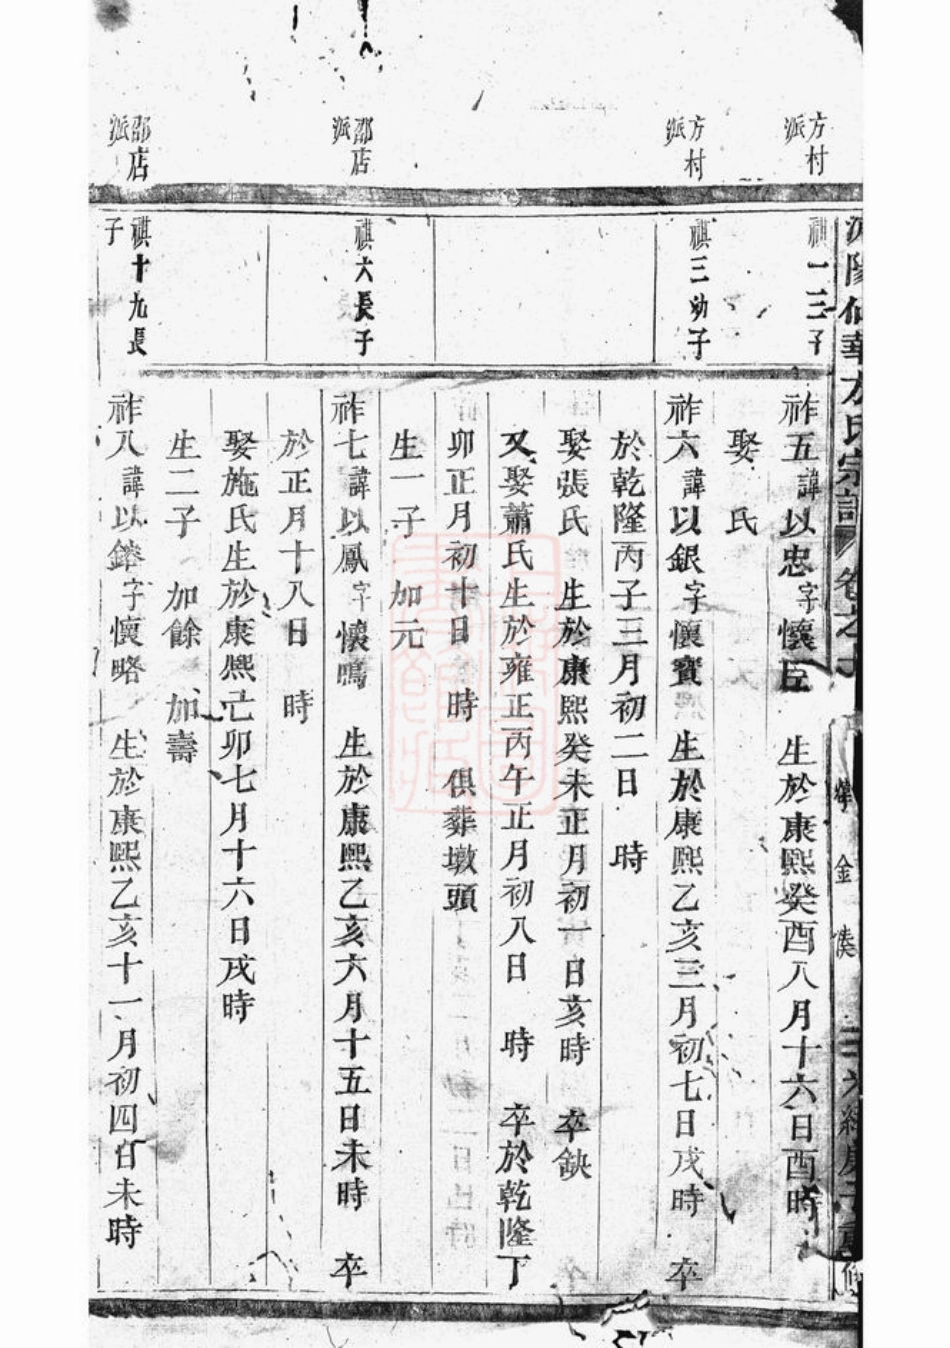 方村派
祺一三子
祚五諱以忠字懷臣 生於康熙癸酉八月十六日酉時
娶 氏
方村派
祺三幼子
祚六諱以銀字懷寶 生於康熙乙亥三月初七日戌時 卒
於乾隆丙子三月初二日 時
娶張氏 生於康熙癸未正月初一日亥時 卒缺
又娶蕭氏生於雍正丙午正月初八日 時 卒於乾隆丁
卯正月初十日 時 俱葬墩頭
生一子 加元
邵店派
祺六長子
祚七諱以鳳字懷鳴 生於康熙乙亥六月十五日未時 卒
於正月十八日 時
娶施氏生於康熙卯七月十六日戌時
生二子 加餘 加壽
邵店派
祺十九長子
祚八諱以字懷略 生於康熙乙亥十一月初四日未時